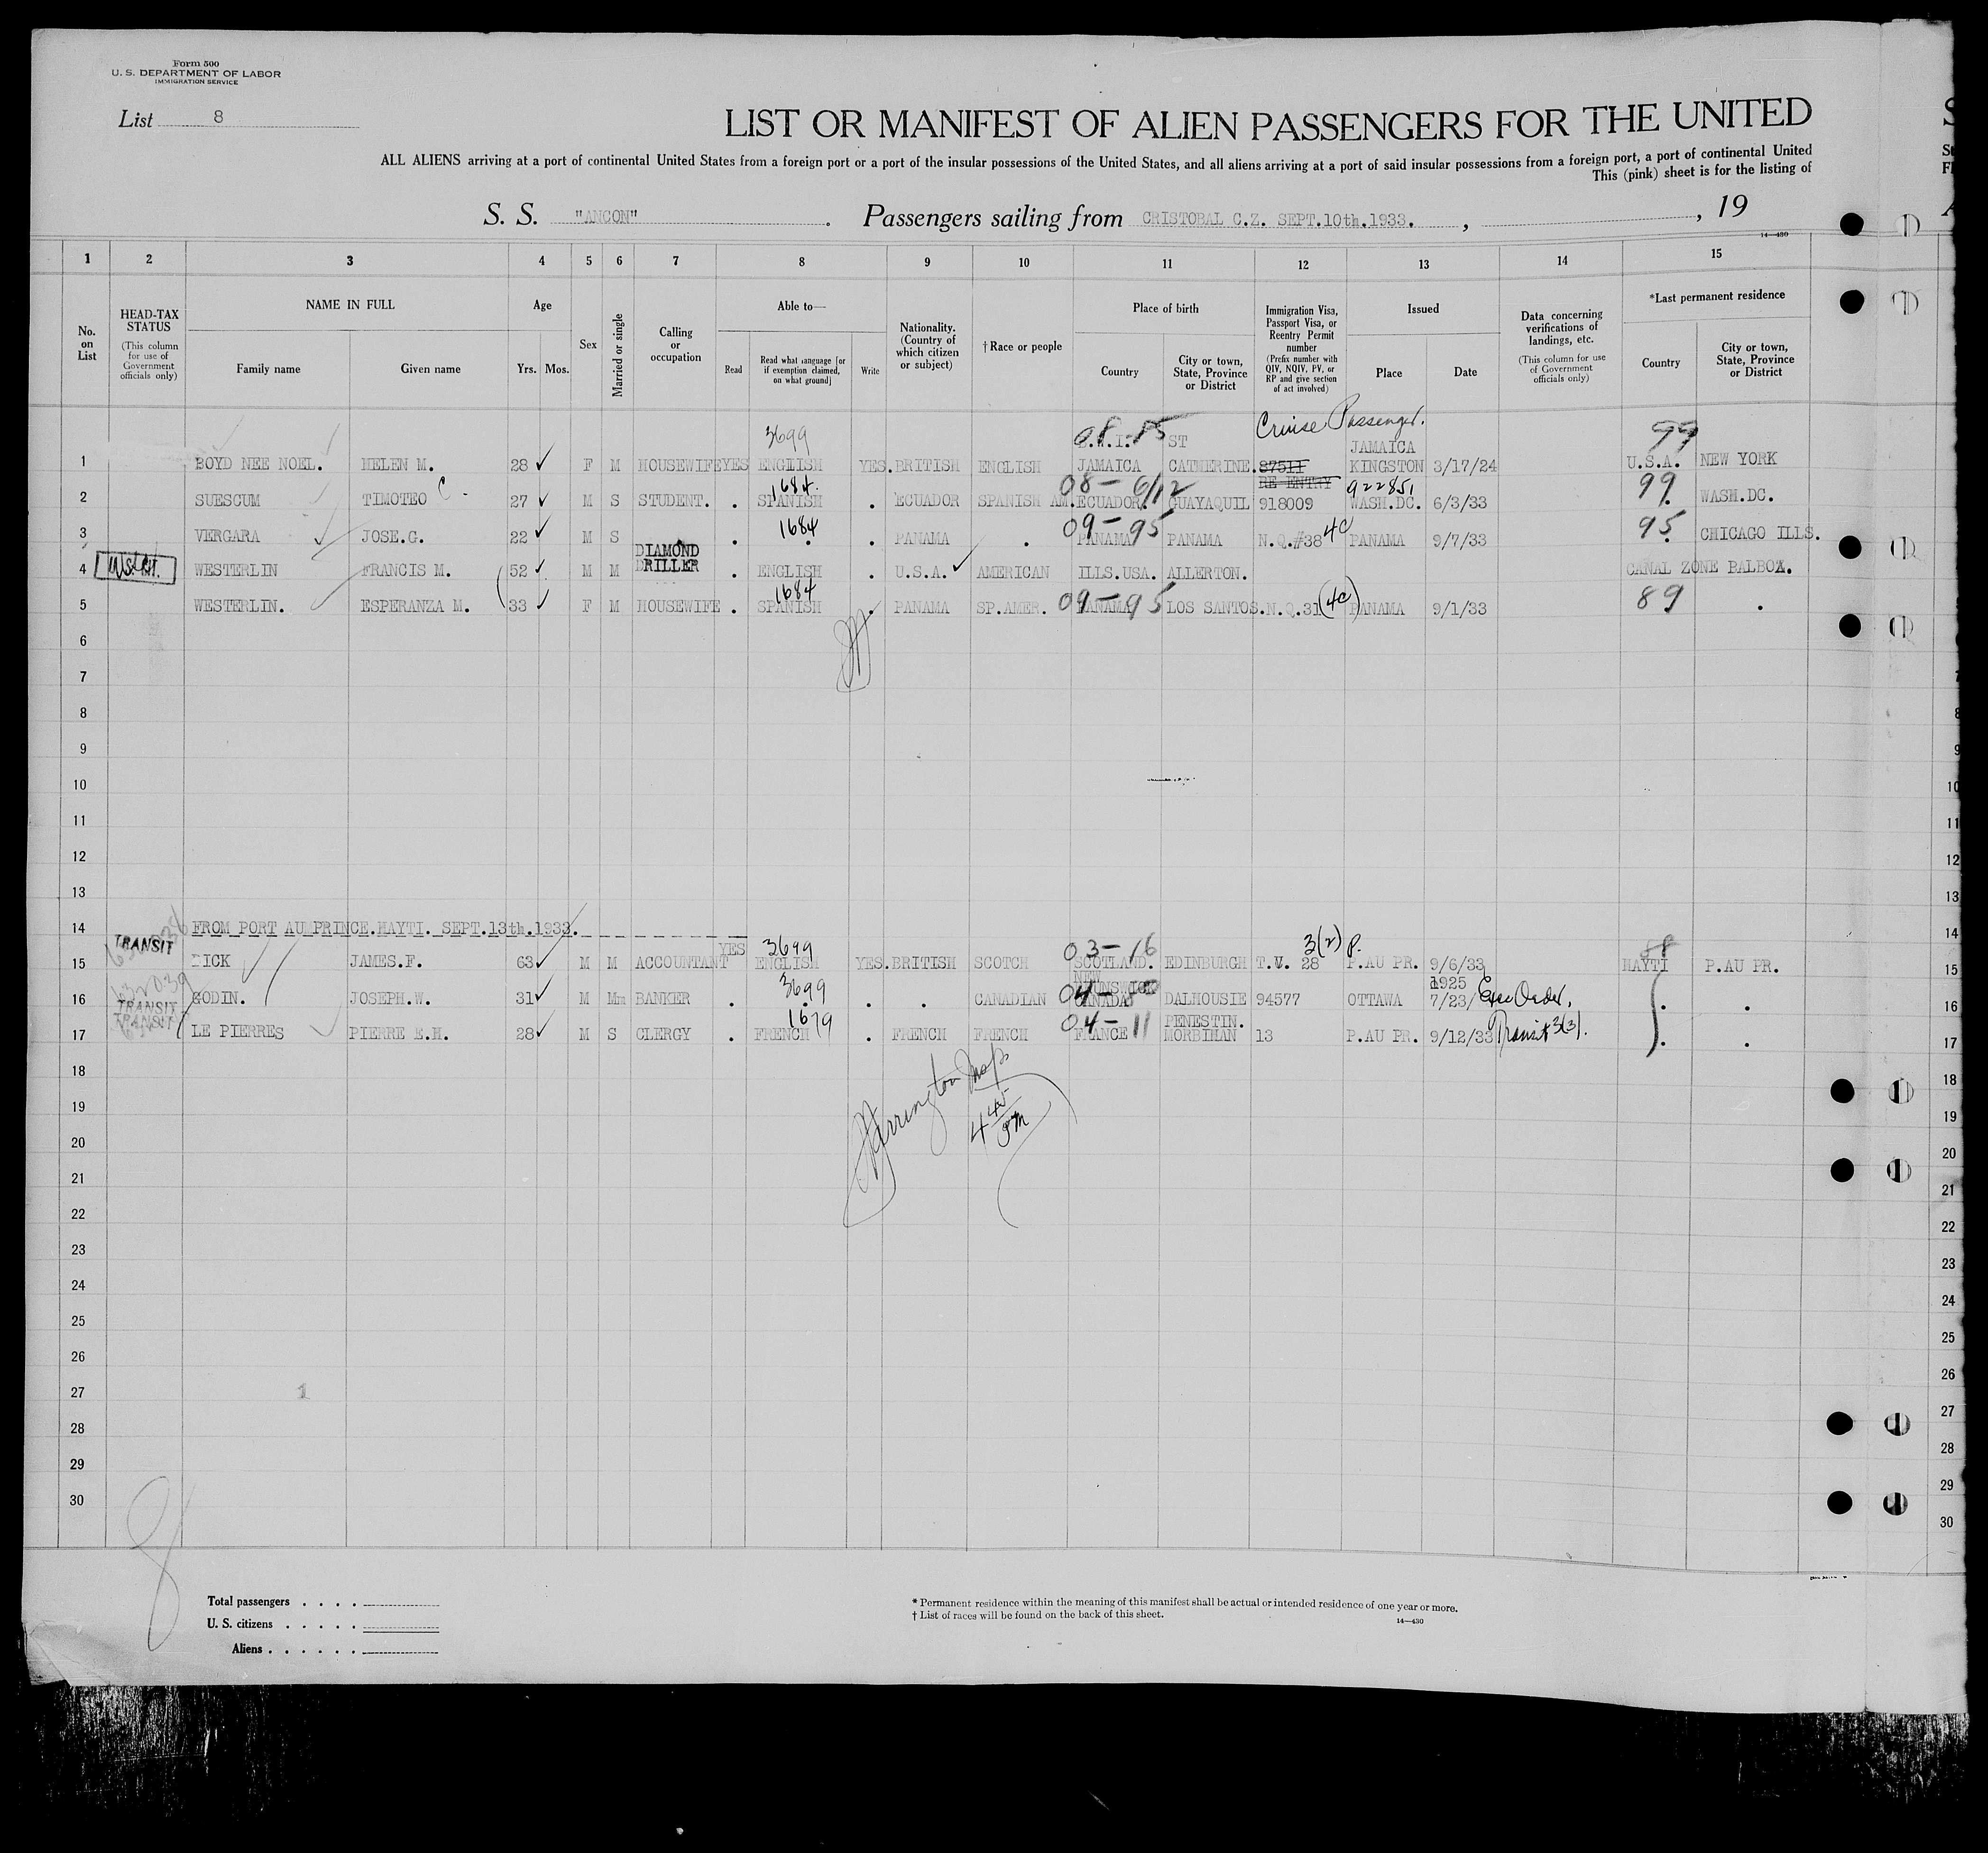 Form 500
U. S. DEPARTMENT OF LABOR
IMMIGRATION SERVICE
List 8
LIST OR MANIFEST OF ALIEN PASSENGERS FOR THE UNITED
ALL ALIENS arriving at a port of continental United States from a foreign port or a port of the insular possessions of the United States, and all aliens arriving at a port of said insular possessions from a foreign port, a port of continental United
This (pink) sheet is for the listing of
S. S. "ANCON" . Passengers sailing from CRISTOBAL C.Z. SEPT.10th.1933. , , 19
14—430
1 2 3 4 5 6 7 8 9 10 11 12 13 14 15
No. on List
HEAD-TAX STATUS (This column for use of Government officials only)
NAME IN FULL Family name Given name
Age Yrs. Mos.
Sex
Married or single
Calling or occupation
Able to— Read Read what language [or if exemption claimed, on what ground] Write
Nationality. (Country of which citizen or subject)
†Race or people
Place of birth Country City or town, State, Province or District
Immigration Visa, Passport Visa, or Reentry Permit number (Prefix number with QIV, NQIV, PV, or RP and give section of act involved)
Issued Place Date
Data concerning verifications of landings, etc. (This column for use of Government officials only)
*Last permanent residence Country City or town, State, Province or District
3699 ST Cruise Passenger. JAMAICA 99
1 BOYD NEE NOEL. HELEN M. 28 F M HOUSEWIFE YES ENGLISH YES. BRITISH ENGLISH JAMAICA CATHERINE. 87511 KINGSTON 3/17/24 U.S.A. NEW YORK
1684. 08—6/12 RE ENTRY 922851 99
2 SUESCUM TIMOTEO C 27 M S STUDENT. . SPANISH . ECUADOR SPANISH AM. ECUADOR. GUAYAQUIL 918009 WASH.DC. 6/3/33 . WASH.DC.
1684 09—95 4C 95
3 VERGARA JOSE.G. 22 M S . . . PANAMA . PANAMA PANAMA N.Q.#38 PANAMA 9/7/33 . CHICAGO ILLS.
DIAMOND
4 WESTERLIN FRANCIS M. 52 M M DRILLER . ENGLISH . U.S.A. AMERICAN ILLS.USA. ALLERTON. CANAL ZONE BALBOA.
1684 09—95 (4C) 89
5 WESTERLIN. ESPERANZA M. 33 F M HOUSEWIFE . SPANISH . PANAMA SP.AMER. PANAMA LOS SANTOS. N.Q.31 PANAMA 9/1/33 .
6
7
8
9
10
11
12
13
14 FROM PORT AU PRINCE.HAYTI. SEPT.13th.1933.
TRANSIT YES 3699 03—16 3(2) P. 88
15 DICK JAMES.F. 63 M M ACCOUNTANT ENGLISH YES. BRITISH SCOTCH SCOTLAND. EDINBURGH T.V. 28 P.AU PR. 9/6/33 HAYTI P.AU PR.
632039 3699 NEW BRUNSWICK 04— 1925
16 TRANSIT GODIN. JOSEPH.W. 31 M M BANKER . . . CANADIAN CANADA DALHOUSIE 94577 OTTAWA 7/23/ Exec Order. . .
TRANSIT 1679 04—11 PENESTIN.
17 LE PIERRES PIERRE E.M. 28 M S CLERGY . FRENCH . FRENCH FRENCH FRANCE MORBIHAN 13 P.AU PR. 9/12/33 Transit 3(3). . .
18
Harrington Insp
19
4 45 pm
20
21
22
23
24
25
26
27 1
28
29
30
8
Total passengers . . . .
U. S. citizens . . . . .
Aliens . . . . . .
* Permanent residence within the meaning of this manifest shall be actual or intended residence of one year or more.
† List of races will be found on the back of this sheet.
14—430